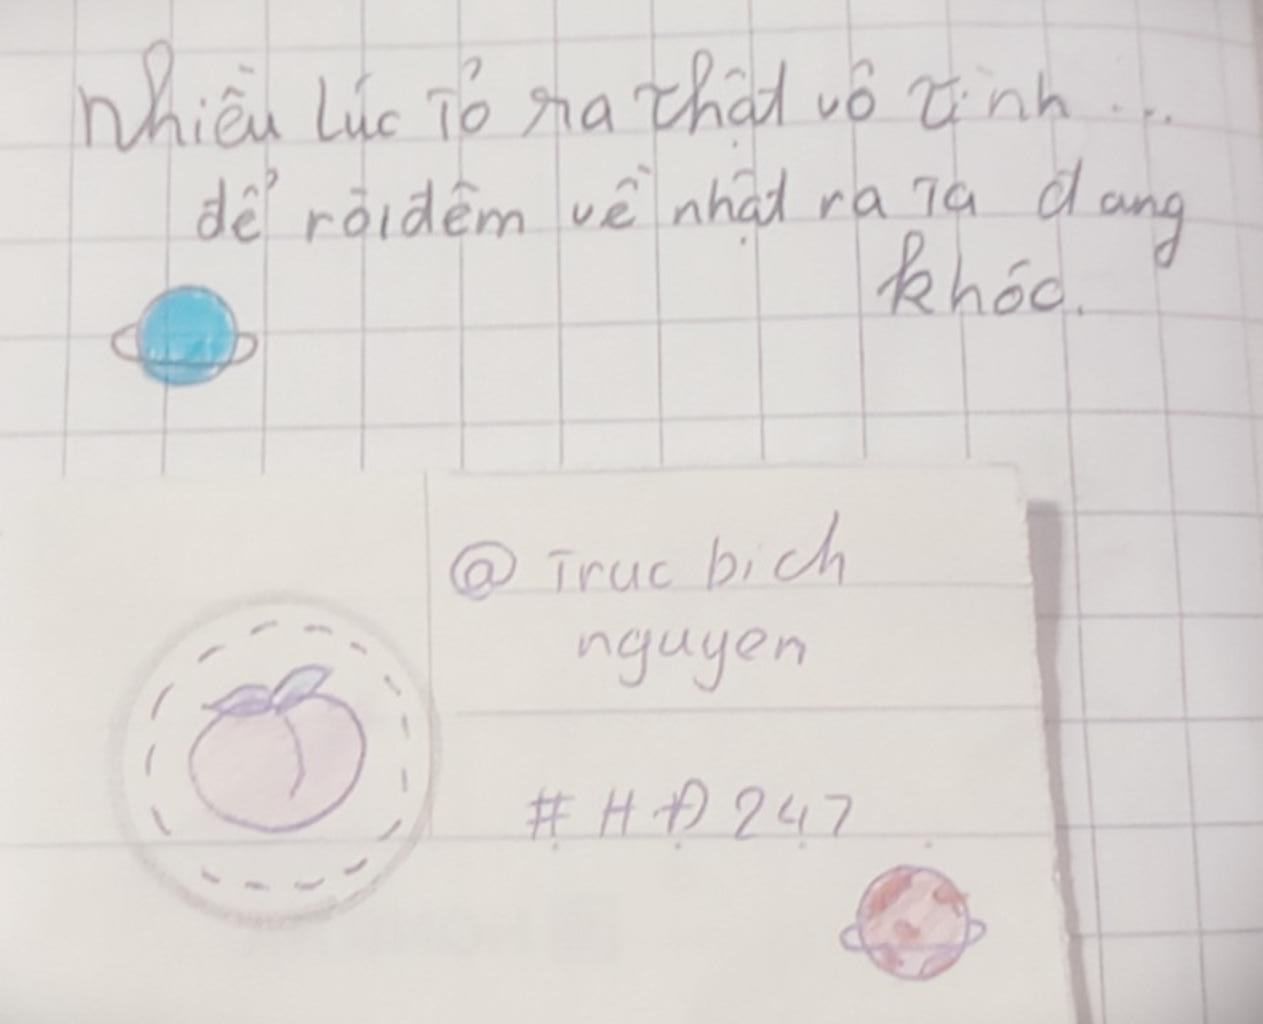 Nhiều Lúc Tỏ ra thật vô tình ...
để rồi đêm về nhật ra Ta đang
khóc.
@ Truc bich
nguyen
# HĐ 247